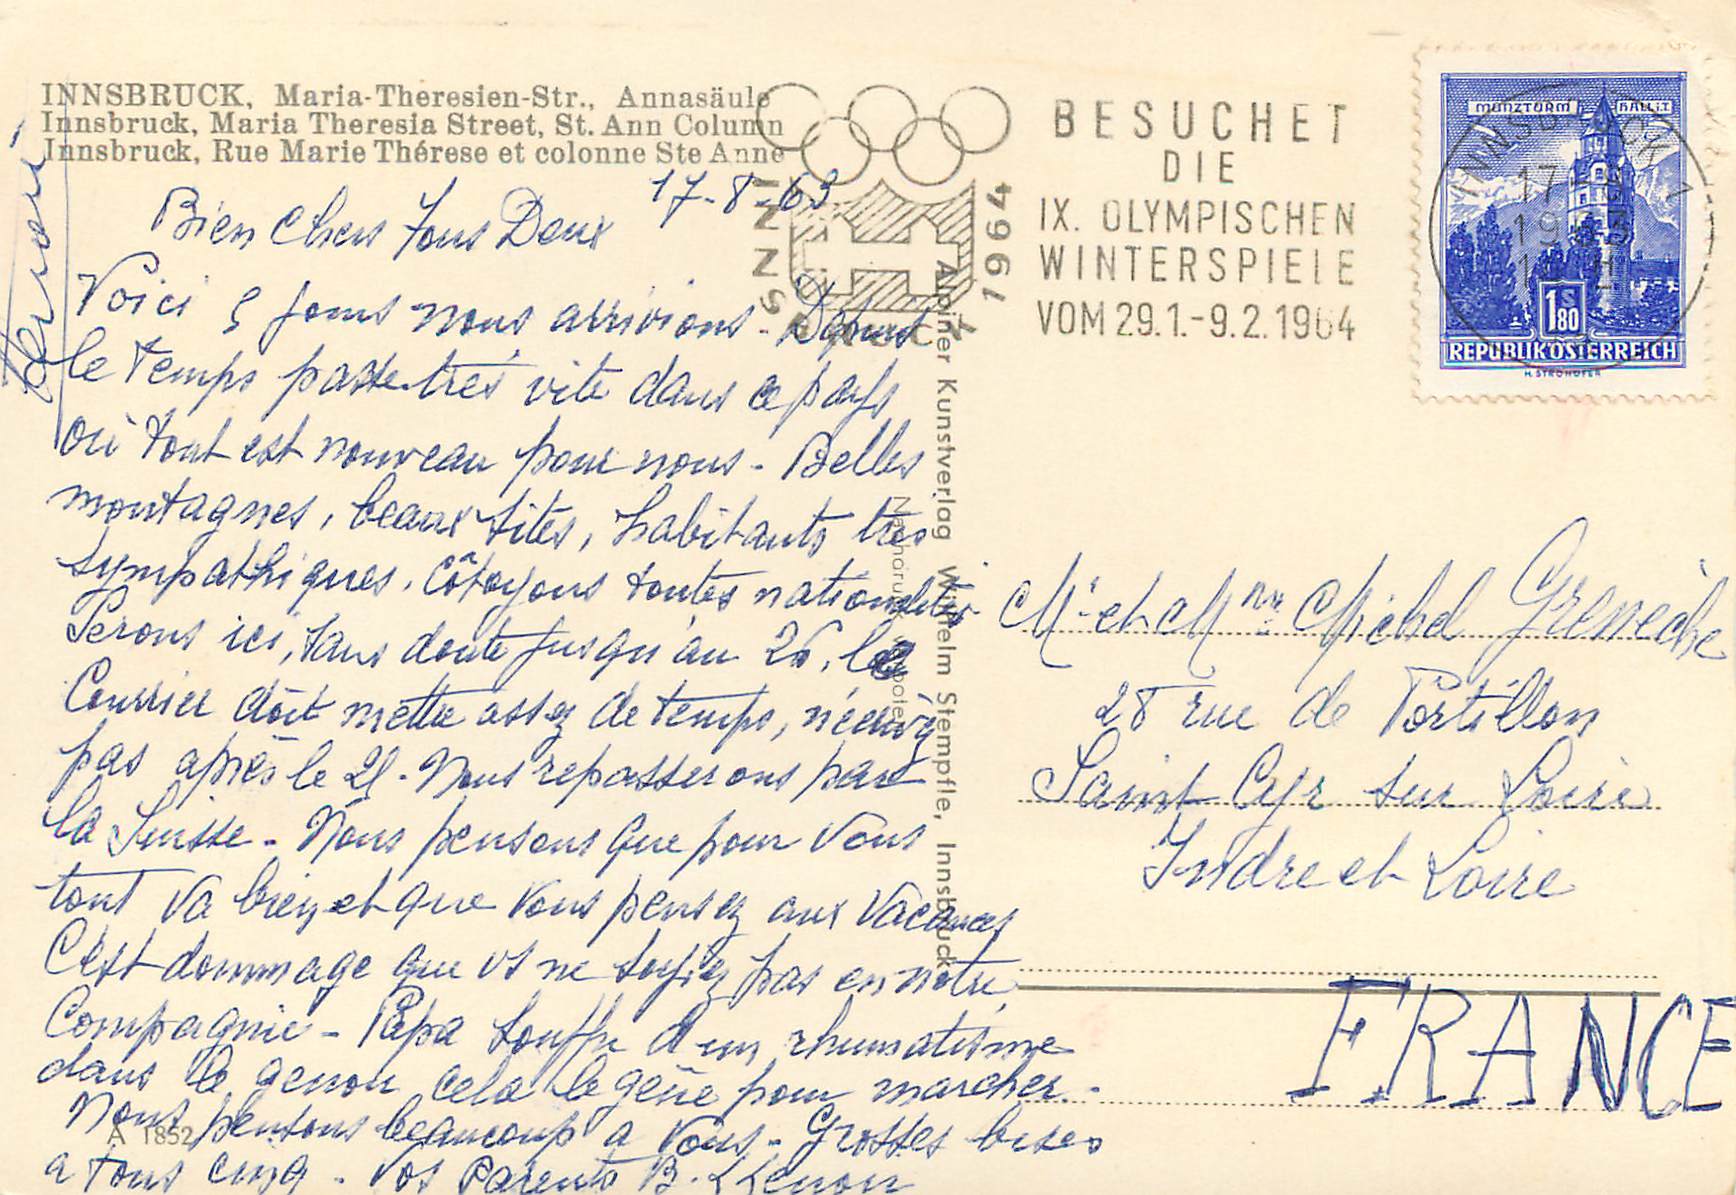 INNSBRUCK, Maria-Theresien-Str., Annasäule
Innsbruck, Maria Theresia Street, St. Ann Column
Innsbruck, Rue Marie Thérese et colonne Ste Anne
17-8-63
Bien Chers Tous Deux
Voici 5 jours nous arrivions - Depuis
le temps passe très vite dans ce pays
où tout est nouveau pour nous - Belles
montagnes, beaux sites, habitants très
sympathiques. Côtoyons toutes nationalités
Serons ici, sans doute jusqu'au 26, le
Courrier doit mettre assez de temps, n'écrivez
pas après le 21 - Nous repasserons par
la Suisse - Nous pensons que pour vous
tout va bien et que vous pensez aux vacances
C'est dommage que vs ne soyiez pas en notre
Compagnie - Papa souffre d'un rhumatisme
dans le genou cela le gêne pour marcher -
Nous pensons beaucoup a vous - Grosses bises
a tous cinq - Vos Parents B.
A 1852
Alpiner Kunstverlag Wilhelm Stempfle, Innsbruck
Nachdruck verboten
INNSBRUCK 1964
BESUCHET
DIE
IX. OLYMPISCHEN
WINTERSPIELE
VOM 29.1.-9.2.1964
MÜNZTURM HALL i.T.
INNSBRUCK 1
S
1 80
REPUBLIK ÖSTERREICH
H. STROHOFER
Mr et Mme Michel Greneche
28 rue de Portillon
Saint Cyr sur Loire
Indre et Loire
FRANCE